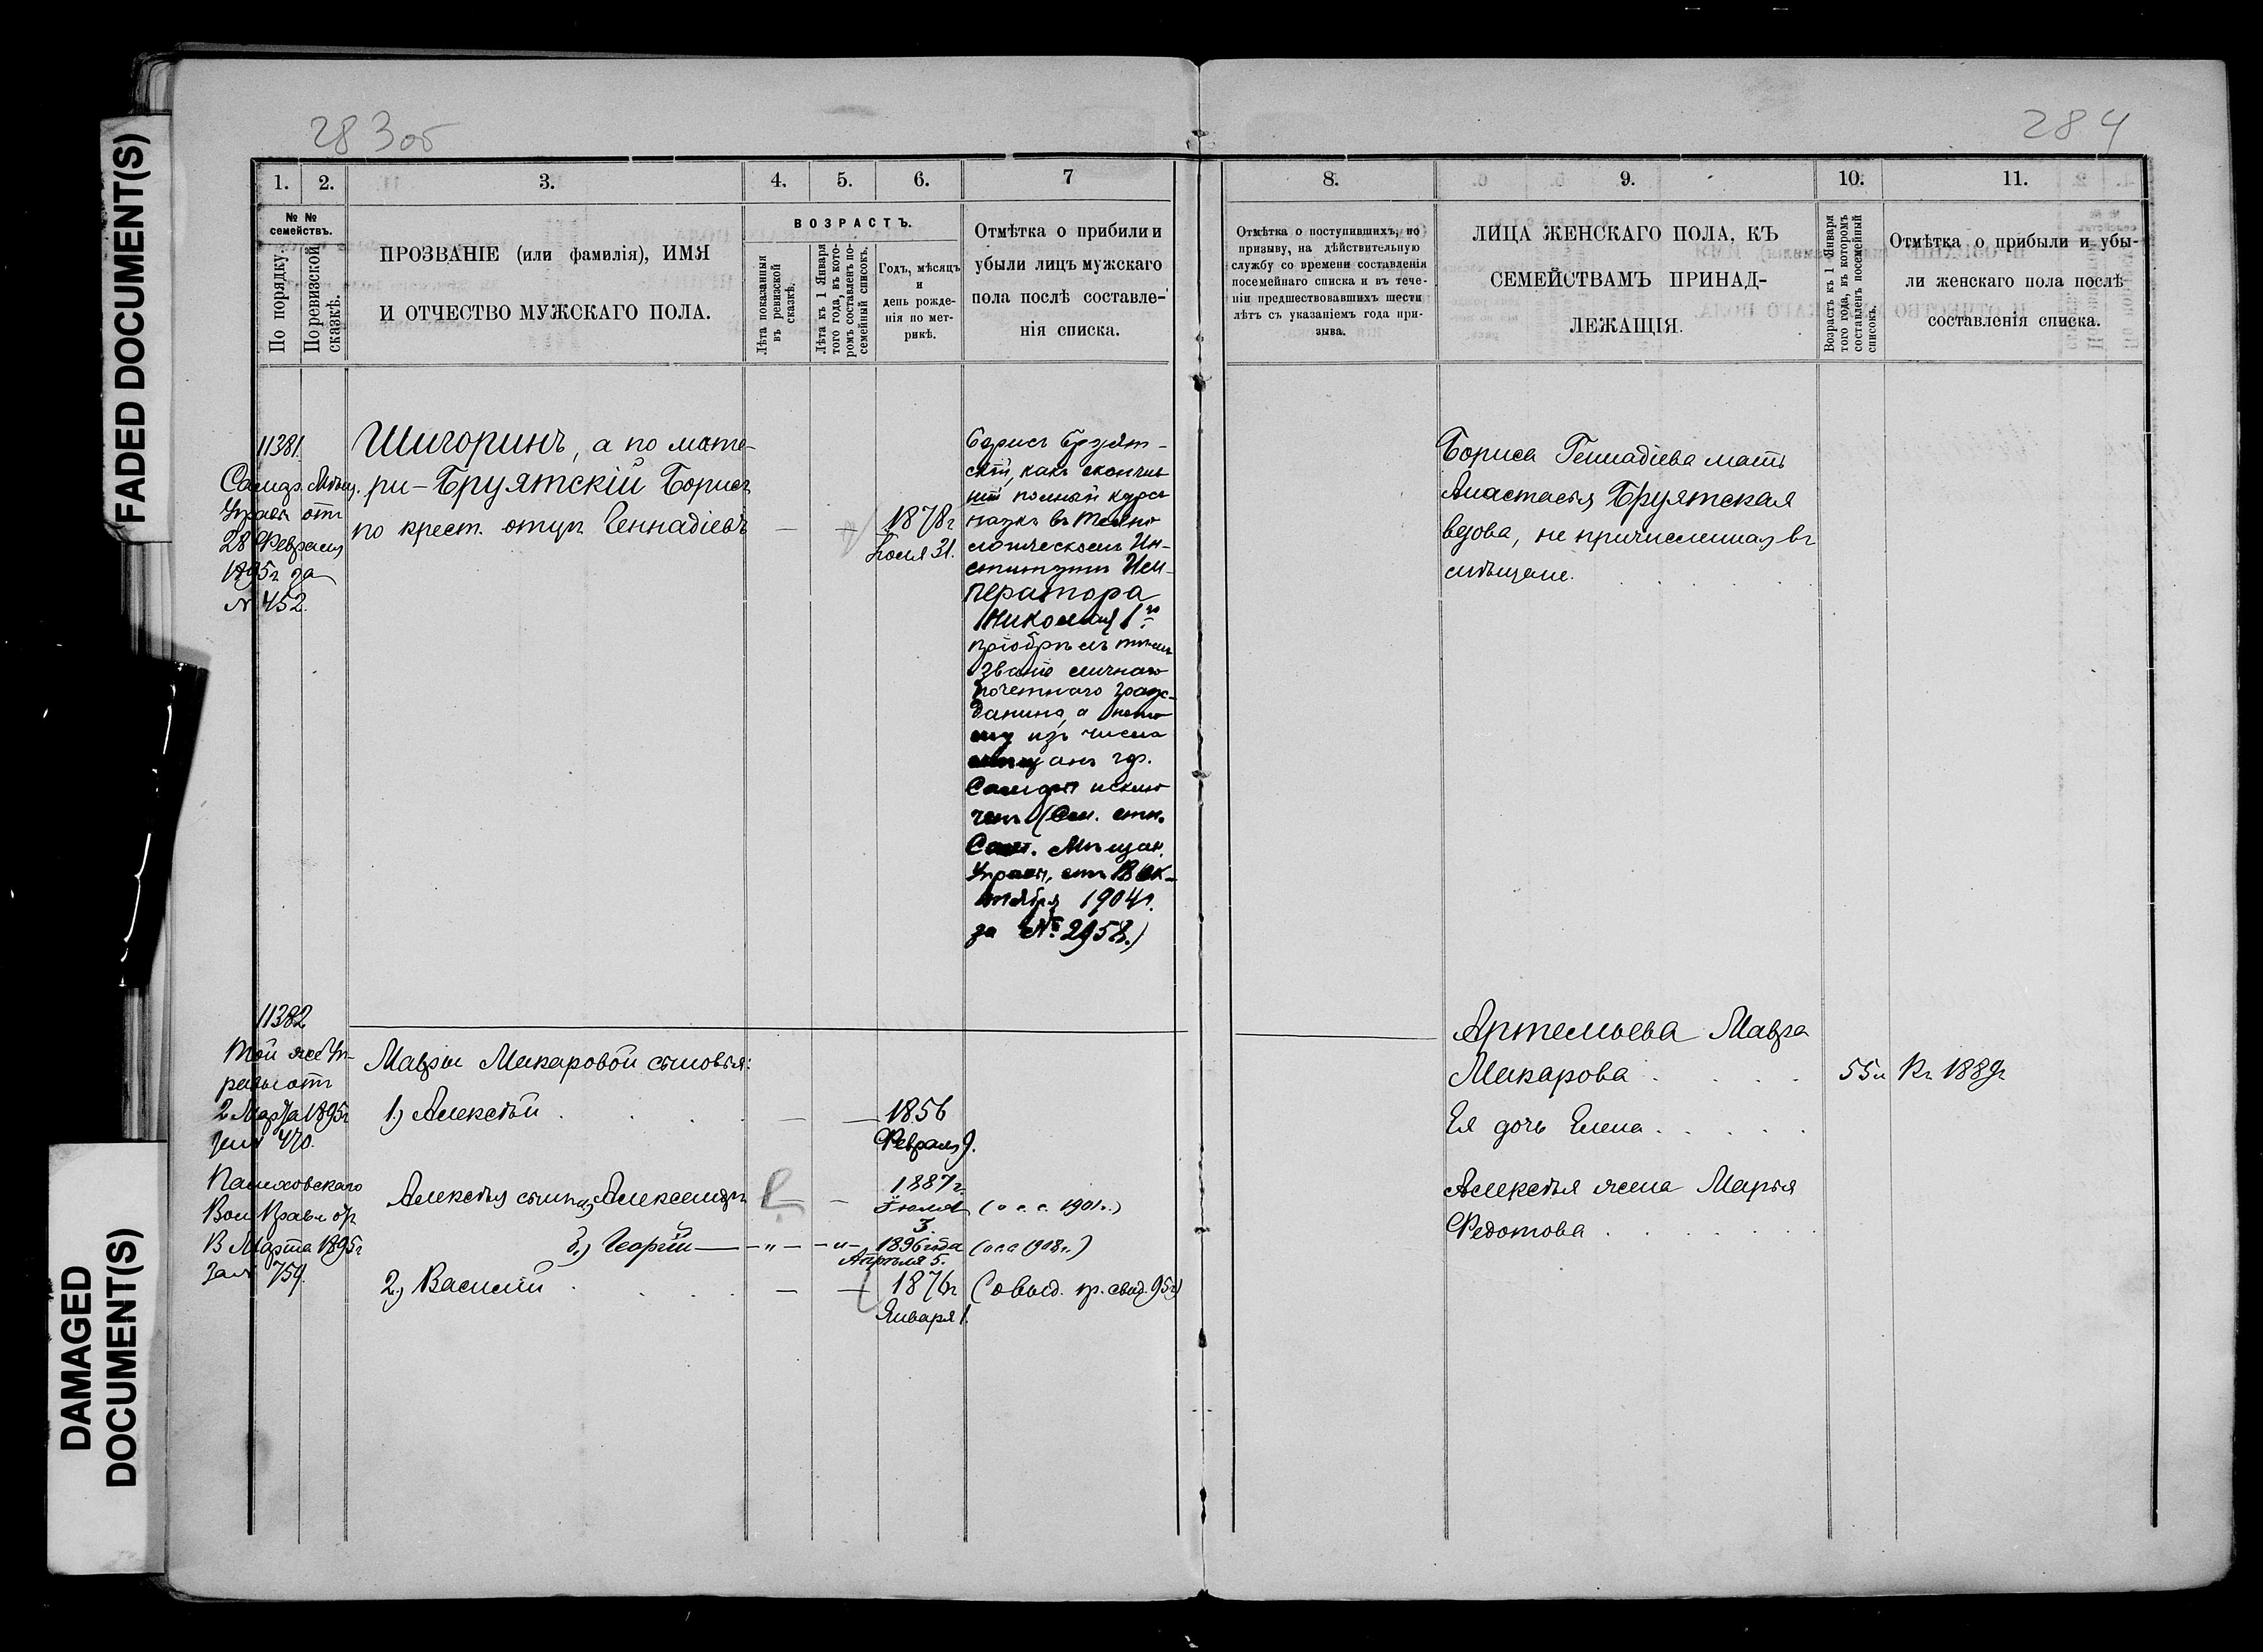 FADED DOCUMENT(S)
DAMAGED
DOCUMENT(S)
283об
1. 2. 3. 4. 5. 6. 7
№ №
семействъ.
По порядку.
По ревизской
сказкѣ.
ПРОЗВАНІЕ (или фамилія), ИМЯ
И ОТЧЕСТВО МУЖСКАГО ПОЛА.
ВОЗРАСТЪ.
Лѣта показанныя
въ ревизской
сказкѣ.
Лѣта къ 1 Января
того года, въ кото-
ромъ составленъ по-
семейный списокъ.
Годъ, мѣсяцъ
и
день рожде-
нія по мет-
рикѣ.
Отмѣтка о прибыли и
убыли лицъ мужскаго
пола послѣ составле-
нія списка.
11381.
Самар. Мѣщ.
Управы отъ
28 Февраля
1895г за
№ 452.
Шигоринъ, а по мате-
ри-Бруятскій Борисъ
по крест. отцу Геннадіевъ
1878г
Іюля 31.
Борисъ Бруят-
скій, какъ окончив
шій полный курсъ
наукъ въ Техно
логическомъ Ин-
ститутѣ Им-
ператора
Николая 1го
пріобрѣлъ тѣмъ
званіе личнаго
почетнаго граж-
данина, а пото
му изъ числа
мѣщанъ гор.
Самары исклю
ченъ (См. отн.
Сам. Мѣщан.
Управы, отъ 18 Ок-
тября 1904г.
за № 2958.)
11382
Той же Уп-
равы отъ
2 Марта 1895г
за № 470.
Вол Правл отъ
13 Марта 1895г
за № 759.
Мавры Макаровой сыновья:
1.) Алексѣй
1856
Февраля 9.
Алексѣя сынъ а) Александръ
1887г.
Іюля
3.
(о с. с. 1901г.)
б.) Георгій
1896 года (о с с 1908г.)
Апрѣля 5.
2.) Василій
1876г (О выд. пр. свид. 95г)
Января 1.
284
8. 9. 10. 11.
Отмѣтка о поступившихъ, по
призыву, на дѣйствительную
службу со времени составленія
посемейнаго списка и въ тече-
ніи предшествовавшихъ шести
лѣтъ съ указаніемъ года при-
зыва.
ЛИЦА ЖЕНСКАГО ПОЛА, КЪ
СЕМЕЙСТВАМЪ ПРИНАД-
ЛЕЖАЩІЯ.
Возрастъ къ 1 Января
того года, въ которомъ
составленъ посемейный
списокъ.
Отмѣтка о прибыли и убы-
ли женскаго пола послѣ
составленія списка.
Бориса Геннадіева мать
Анастасія Бруятская
вдова, не причисленная въ
мѣщане.
Артемьева Мавра
Макарова 55л Къ 1889г
Ея дочь Елена
Алексѣя жена Марья
Федотова